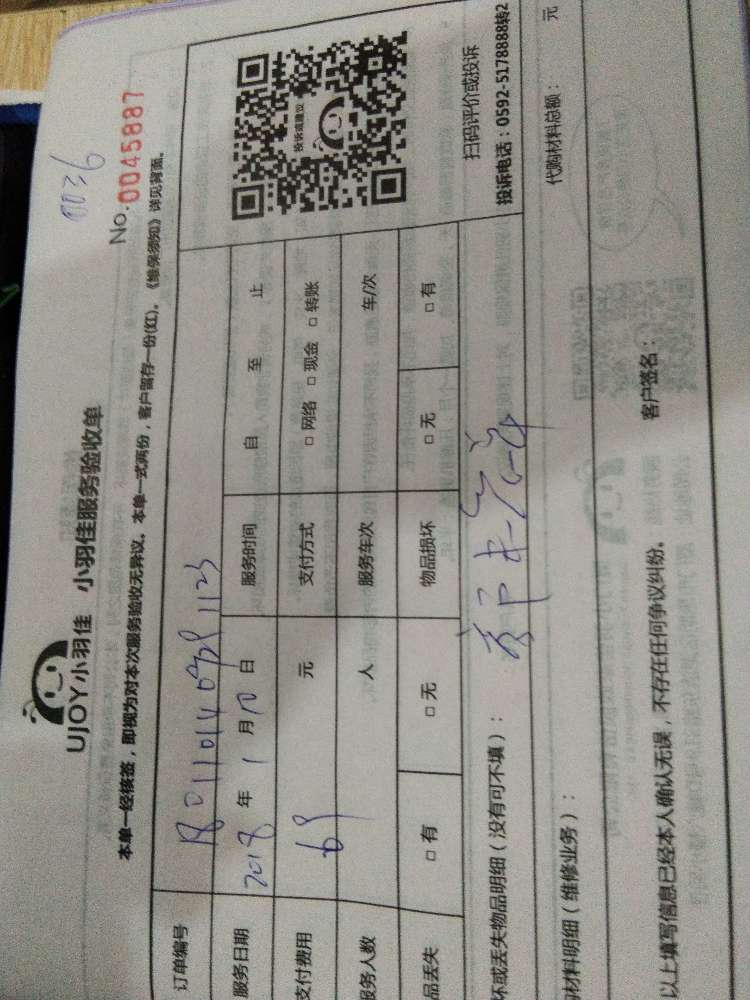 0036
No.0045887
UJOY小羽佳 小羽佳服务验收单
本单一经核签，即视为对本次服务验收无异议。本单一式两份，客户留存一份(红)。《维保须知》详见背面。
订单编号
服务日期 2018 年 1 月 10 日 服务时间 自 至 止
支付费用 69 元 支付方式 □ 网络 □ 现金 □ 转账
服务人数 人 服务车次 车/次
品丢失 □ 有 □ 无 物品损坏 □ 无 □ 有
投诉或建议
扫码评价或投诉
投诉电话：0592-5178888转2
坏或丢失物品明细（没有可不填）：
材料明细（维修业务）： 代购材料总额： 元
以上填写信息已经本人确认无误，不存在任何争议纠纷。 客户签名：